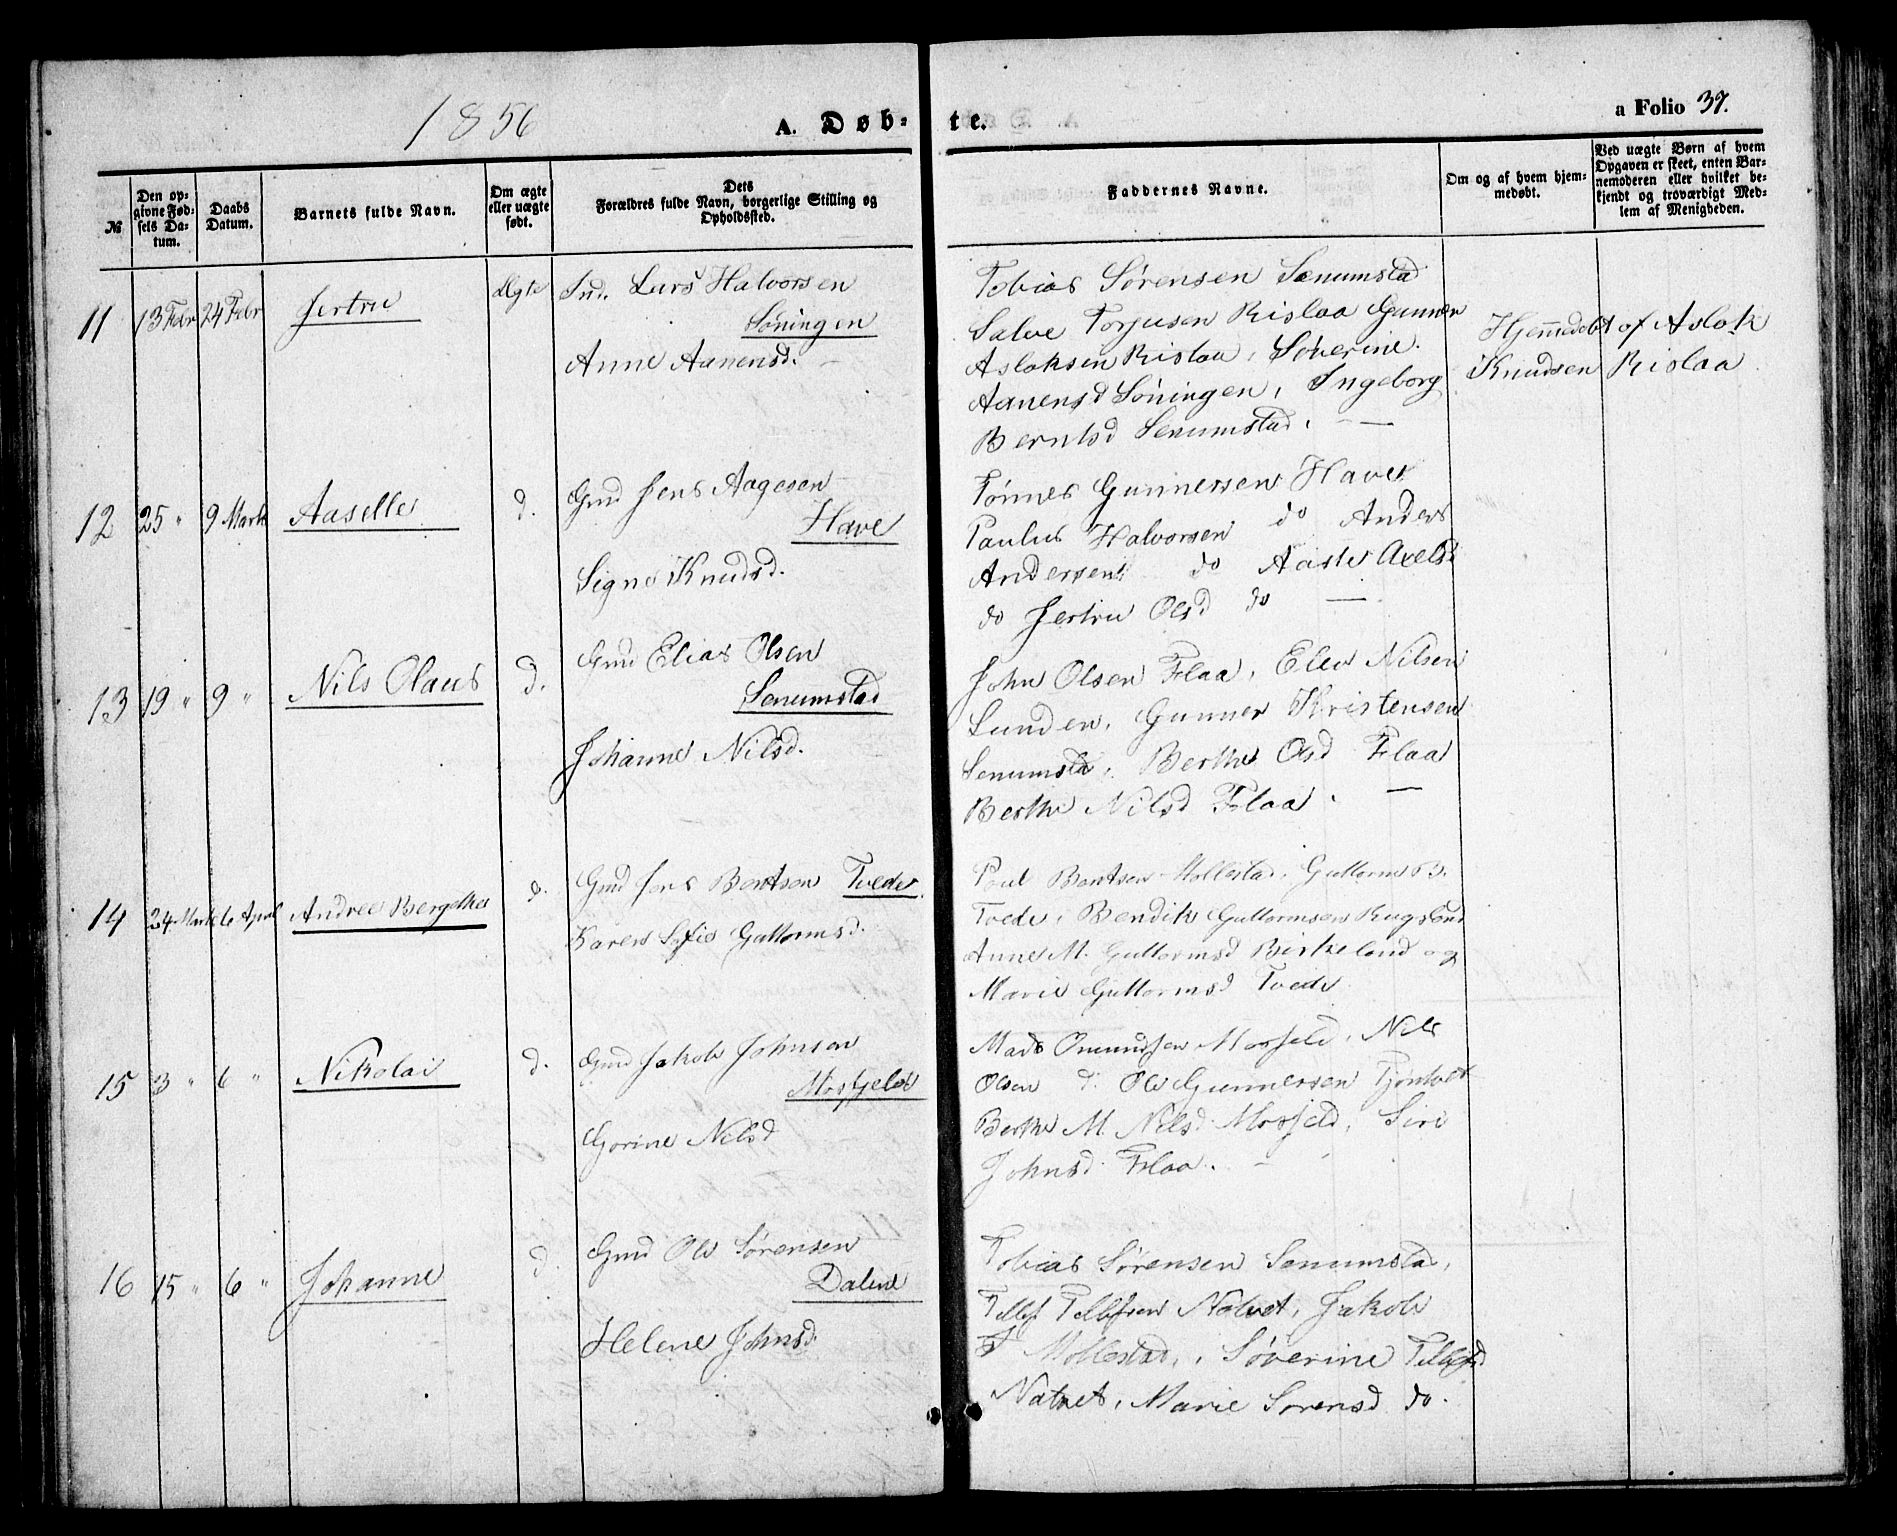 1856
A. Døb-
te.
a Folio 37.
№
Den op-
givne Fød-
sels Da-
tum.
Daabs
Datum.
Barnets fulde Navn.
Om ægte
eller uægte
født.
Dets
Forældres fulde Navn, borgerlige Stilling og
Opholdssted.
Faddernes Navne.
Om og af hvem hjem-
medøbt.
Ved uægte Børn af hvem
Opgaven er skeet, enten Bar-
nemoderen eller hvilket be-
kjendt og troværdigt Med-
lem af Menigheden.
11 13 Febr 24 Febr Jertru Ægte Ind. Lars Halvorsen
Søningen
Anne Aanensd.
Tobias Sørensen Senumstad
Salve Torjusen Rislaa Gunner
Aslaksen Rislaa, Søverine
Aanensd Søningen, Ingeborg
Berntsd Senumstad. —
Hjemmedøbt af Aslak
Knudsen Rislaa
12 25 " 9 Marts Aaselle d. Gmd Jens Aagesen
Have
Signe Knudsd.
Tønnes Gunnersen Have
Paulus Halvorsen do Anders
Andersen do Aaste Axelsd
do Jertru Olsd do —
13 19 " 9 " Nils Olaus d. Gmd Elias Olsen
Senumstad
Johanne Nilsd.
John Olsen Flaa, Elev Nilsen
Lunden, Gunner Kristensen
Senumsta, Berthe Olsd Flaa
Berthe Nilsd Flaa. —
14 24 Marts 6 April Andrea Bergethe d. Gmd Jens Bentsen Tvede
Karen Sofie Guttormsd.
Poul Bentsen Mollestad, Guttorm B.
Tvede, Bendik Guttormsen Rugsland
Anne M. Guttormsd Birkeland og
Marie Guttormsd Tvede
15 3 " 6 " Nikolai d. Gmd Jakob Johnsen
Mosfjeld
Gorine Nilsd
Mads Omundsen Mosfjeld, Nils
Olsen d. Ole Gunnersen Tjøntvet
Berthe M. Nilsd Mosfjeld, Siri
Johnsd. Flaa. —
16 15 " 6 " Johanne d. Gmd Ole Sørensen
Dalene
Helene Johnsd
Tobias Sørensen Senumstad,
Tellef Tellefsen Natvet, Jakob
T Mollestad, Søverine Tellefsd
Natvet, Marie Sørensd do.